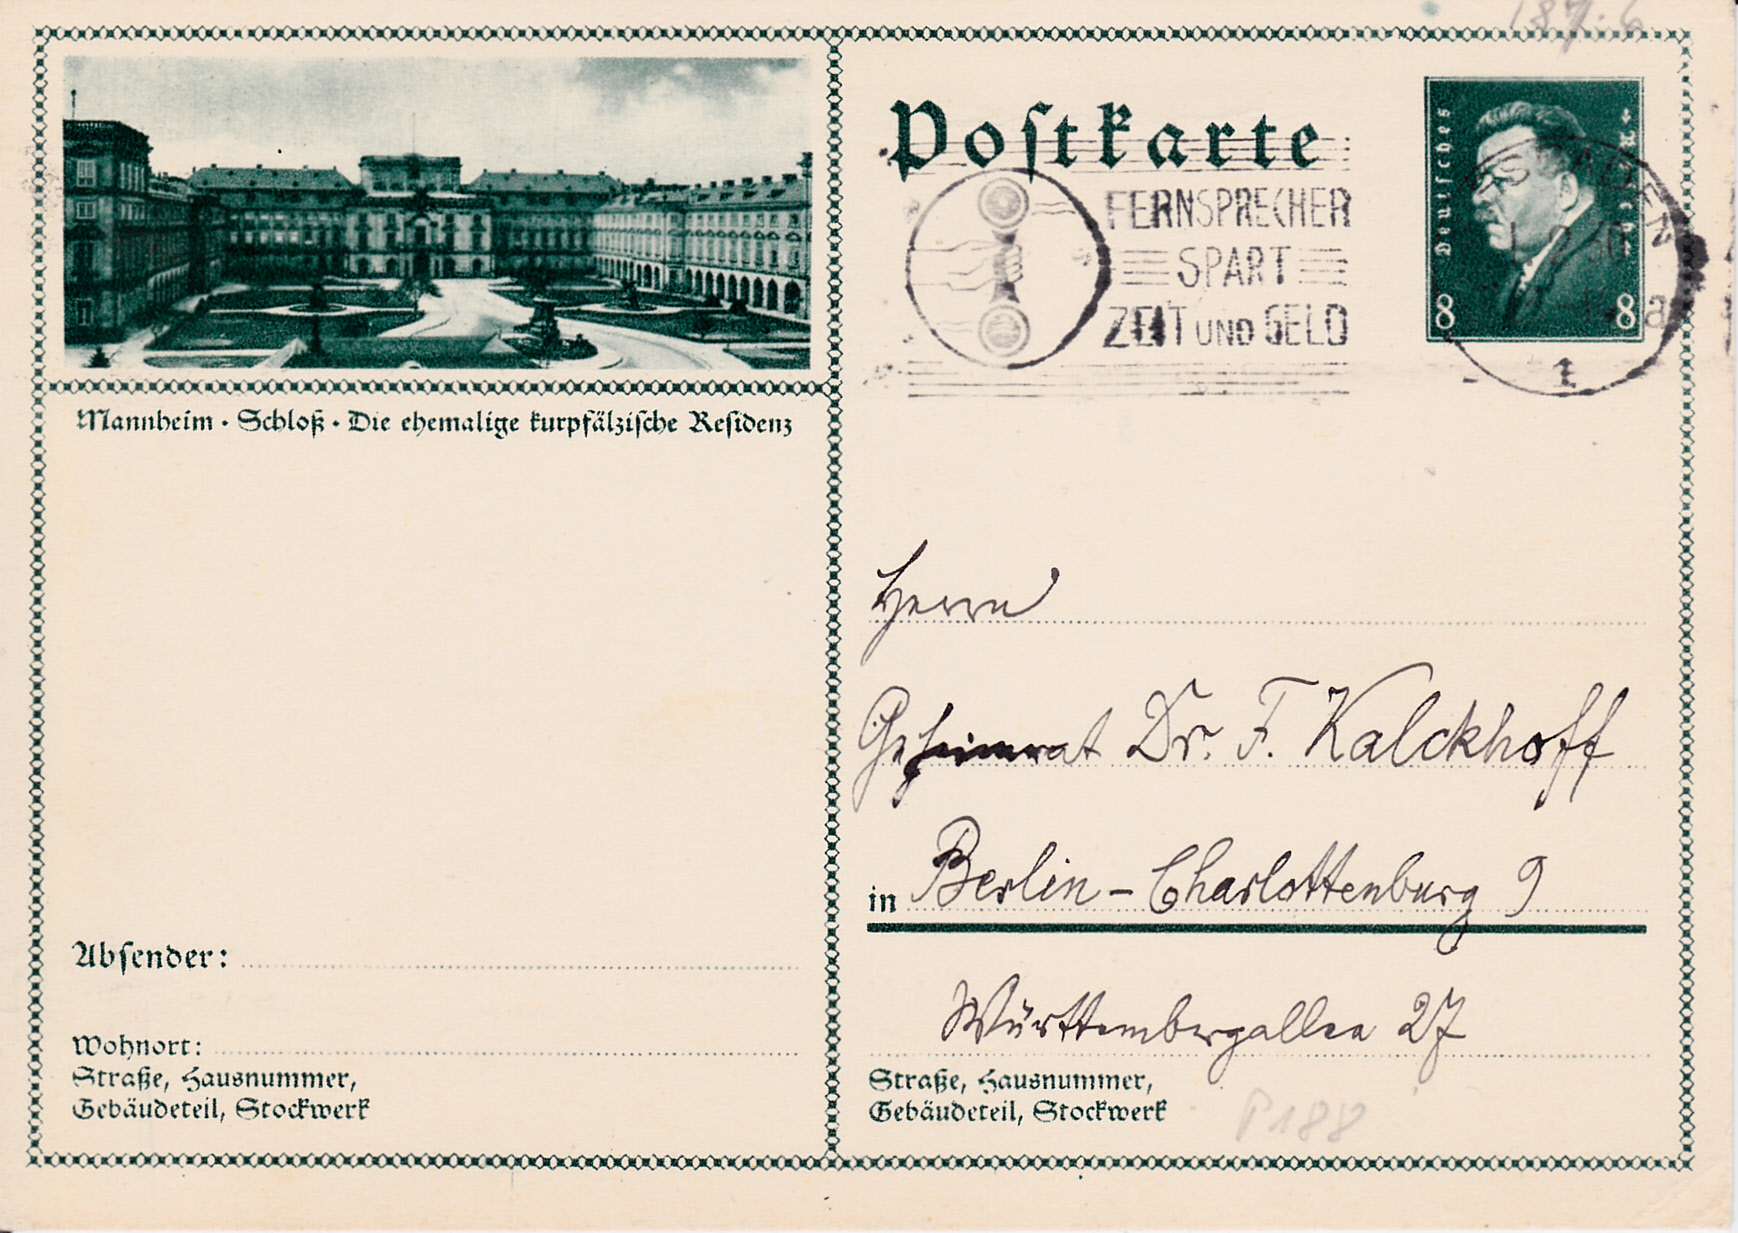 187.6
Mannheim · Schloß · Die ehemalige kurpfälzische Residenz
Absender:
Wohnort:
Straße, Hausnummer,
Gebäudeteil, Stockwerk
Postkarte
FERNSPRECHER
SPART
ZEIT UND GELD
Deutsches Reich
8 8
1
Herrn
Geheimrat Dr. F. Kalckhoff
in Berlin-Charlottenburg 9
Württembergallee 27
Straße, Hausnummer,
Gebäudeteil, Stockwerk
P188